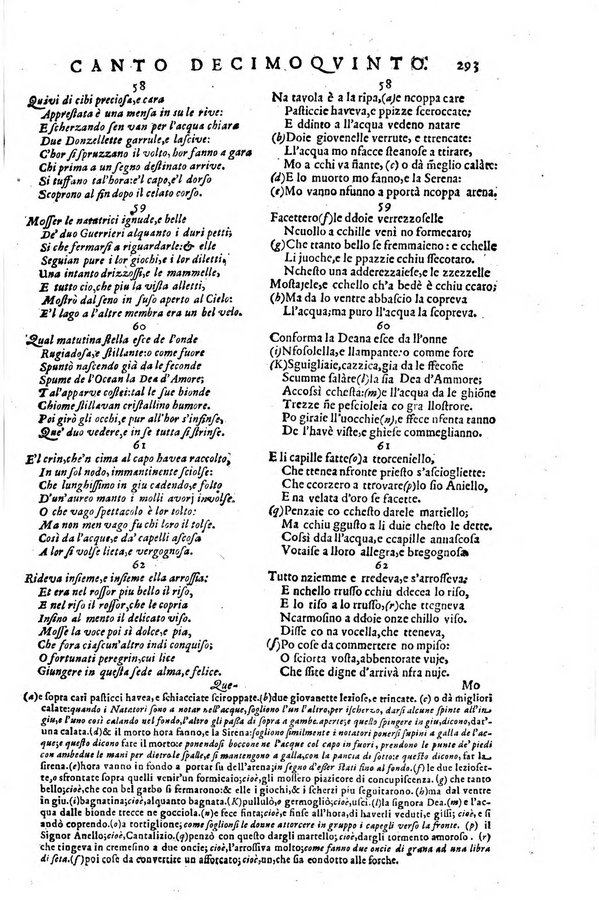 CANTO DECIMOQVINTO. 293
58
Quivi di cibi preciosa, e cara
Apprestata è una mensa in su le rive:
E scherzando sen van per l'acqua chiara
Due Donzellette garrule, e lascive:
C'hor si spruzzano il volto, hor fanno a gara
Chi prima a un segno destinato arrive.
Si tuffano tal'hora: e'l capo, e'l dorso
Scoprono al fin dopo il celato corso.
59
Mosser le natatrici ignude, e belle
De' duo Guerrieri alquanto i duri petti;
Si che fermarsi a riguardarle: & elle
Seguian pure i lor giochi, e i lor diletti;
Una intanto drizzossi, e le mammelle,
E tutto ciò, che piu la vista alletti,
Mostrò dal seno in suso aperto al Cielo:
E'l lago a l'altre membra era un bel velo.
60
Qual matutina stella esce de l'onde
Rugiadosa, e stillante: o come fuore
Spuntò nascendo già da le feconde
Spume de l'Ocean la Dea d'Amore;
Tal'apparve costei: tal le sue bionde
Chiome stillavan cristallino humore.
Poi girò gli occhi, e pur all'hor s'infinse,
Que' duo vedere, e in se tutta si strinse.
61
E'l crin, che'n cima al capo havea raccolto,
In un sol nodo, immantinente sciolse:
Che lunghissimo in giu cadendo, e folto
D'un'aureo manto i molli avorj involse.
O che vago spettacolo è lor tolto:
Ma non men vago fu chi loro il tolse.
Così da l'acque, e da' capelli ascosa
A lor si volse lieta, e vergognosa.
62
Rideva insieme, e insieme ella arrossia:
Et era nel rossor piu bello il riso,
E nel riso il rossor, che le copria
Insino al mento il delicato viso.
Mosse la voce poi sì dolce, e pia,
Che fora ciascun'altro indi conquiso;
O fortunati peregrin, cui lice
Giungere in questa sede alma, e felice.
Que-
58
Na tavola è a la ripa, (a) e ncoppa care
Pasticcie haveva, e ppizze sceroccate:
E ddinto a ll'acqua vedeno natare
(b) Doie giovenelle verrute, e ttrencate:
Ll'acqua mo nfacce stteanose a ttirare,
Mo a cchi va nante, (c) o dà meglio calàte:
(d) E lo muorto mo fanno, e la Serena:
(e) Mo vanno nfunno a pportà ncoppa arena.
59
Facettero (f) le ddoie verrezzoselle
Ncuollo a cchille veni no formecaro;
(g) Che ttanto bello se fremmaieno: e cchelle
Li juoche, e le ppazzie cchiu ffecotaro.
Nchesto una adderezzaiese, e le zzezzelle
Mostajele, e cchello ch'a bedè è cchiu ccaro;
(h) Ma da lo ventre abbascio la copreva
Ll'acqua; ma puro ll'acqua la scopreva.
60
Conforma la Deana esce da ll'onne
(i) Nfosolella, e llampante: o comme fore
(K) Sguigliaie, cazzica, già da le ffecoñe
Scumme salàte (l) la sia Dea d'Ammore;
Accossì cchesta: (m) e ll'acqua da le ghióne
Trezze ñe pescioleia co gra llostrore.
Po giraie ll'uocchie (n), e ffece nfenta tanno
De l'havè viste, e ghiese commeglianno.
61
E li capille fatte (o) a ttorceniello,
Che ttenea nfronte priesto s'asciogliette:
Che ccorzero a ttrovare (p) lo sio Aniello,
E na velata d'oro se facette.
(q) Penzaie co cchesto darele martiello;
Ma cchiu ggusto a li duie chesto le dette.
Cossì dda ll'acqua, e ccapille annascosa
Votaise a lloro allegra, e bregognosa
62
Tutto nziemme e rredeva, e s'arrosseva:
E nchello rrusso cchiu iddeo lo riso,
E lo riso a lo rrusso, (r) che ttegneva
Ncarmosino a ddoie onze chillo viso.
Disse co na vocella, che tteneva,
(s) Po comme da no mpiso:
O sciorta vosta, abbentorate vuje,
Che ssite digne d'arrivà nfra nuje.
Mo
(a) e sopra cari pasticci havea, e schiacciate sciroppate. (b) due giovanette leziose, e trincate. (c) o dà migliori
calate: quando i Natatori sono a notar nell'acqua, sogliono l'un l'altro, per ischerzo, darsi alcune spinte all'in
giu, e l'uno così calando nel fondo, l'altro gli passa di sopra a gambe aperte; e questo spingere in giu, dicono, dat'-
una calata. (d) & il morto hora fanno, e la Sirena: sogliono similmente i notatori ponersi supini a galla de l'ac-
qua; e questo dicono fare il morto: e ponendosi boccone ne l'acqua col capo in fuori, prendono le punte de' piedi
con ambedue le mani per dietro le spalle, e si mantengono a galla, con la pancia di sotto: questo dicono, far la
sirena. (e) hora vanno in fondo a portar sopra dell'arena; in segno d'esser stati sino al fondo. (f) le due lezioset-
te, o sfrontate sopra quelli venir'un formicaio; cioè, gli mossero piazicore di concupiscenza. (g) che tanto
bello; cioè, che con bel garbo si fermarono: & elle i giochi, & i scherzi piu seguitarono. (h) ma dal ventre
in giu. (i) bagnatina; cioè, alquanto bagnata. (K) pullulò, e germogliò; cioè, uscì. (l) la signora Dea. (m) e l'ac-
qua dalle bionde trecce ne gocciola. (n) e fece finta; cioè, finse all'hora, di haverli veduti, e gissi; cioè, e si
andò coprendo. (o) a tortiglione; come soglionsi de attorchiare in gruppo i capegli verso la fronte. (p) il
Signor Anello; cioè, Cantalizio. (q) penzò con questo dargli martello; cioè, dargli tormento amoroso. (r)
che tingeva in cremesino a due oncie; cioè, l'arrossiva molto; come fanno due oncie di grana ad una libra
di seta. (s) poi cose da convertire un afforcato; cioè, un, che sia condotto alle forche.